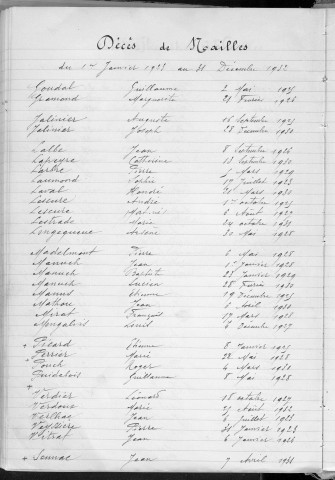 Décès de Nailles
du 1er Janvier 1923 au 31 Décembre 1932
Goudal Guillaume 2 Mai 1925
Gramond Marguerite 21 Février 1926
Jalinier Auguste 16 Septembre 1925
Jalinier Joseph 28 Décembre 1930
Lalle Jean 8 Septembre 1926
Lapeyre Catherine 13 Septembre 1930
Larbre Pierre 5 Mars 1929
Laumond 17 Juillet 1923
Laval Honoré 21 Mars 1930
Lescure André 1er octobre 1925
Lescure 6 Août 1927
Lestrade Marie 24 octobre 1931
Longequeue 30 Mai 1928
Madelmont Pierre 6 Mai 1928
Manuch Jean 1er Janvier 1928
Manuch Baptiste 22 Janvier 1929
Manuch Lucien 28 Février 1931
Manus Etienne 19 Décembre 1925
Mathou Jean 2 Avril 1931
Mirat François 17 Mars 1928
Louis 6 Décembre 1927
+ Picard Etienne 8 Janvier 1925
Perrier Marie 22 Mai 1928
Pouch Roger 4 Mars 1930
Guillaume 8 Mai 1928
+
Verdier Léonard 18 octobre 1927
Verdoux Marie 27 Août 1932
Verlhac Jean 1 Juillet 1928
Veyssière Pierre 31 Janvier 1923
Vitrat Jean 6 Janvier 1928
+ Jean 7 Avril 1931